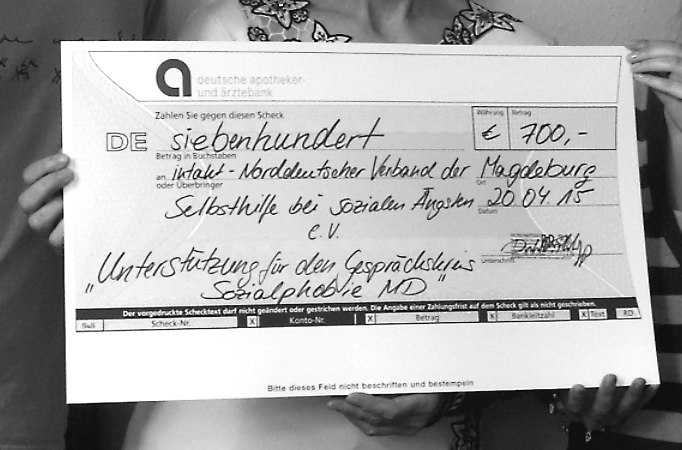 a deutsche apotheker-
und ärztebank
Zahlen Sie gegen diesen Scheck
Währung
Betrag
DE siebenhundert € 700,-
Betrag in Buchstaben
an intakt - Norddeutscher Verband der Magdeburg
oder Überbringer
Ort
Selbsthilfe bei sozialen Ängsten 20.04.15
Datum
e.V.
Unterschrift
„Unterstützung für den Gesprächskreis
Sozialphobie MD"
Der vorgedruckte Schecktext darf nicht geändert oder gestrichen werden. Die Angabe einer Zahlungsfrist auf dem Scheck gilt als nicht geschrieben.
Scheck-Nr. X Konto-Nr. X Betrag X Bankleitzahl X Text RD
Bitte dieses Feld nicht beschriften und bestempeln